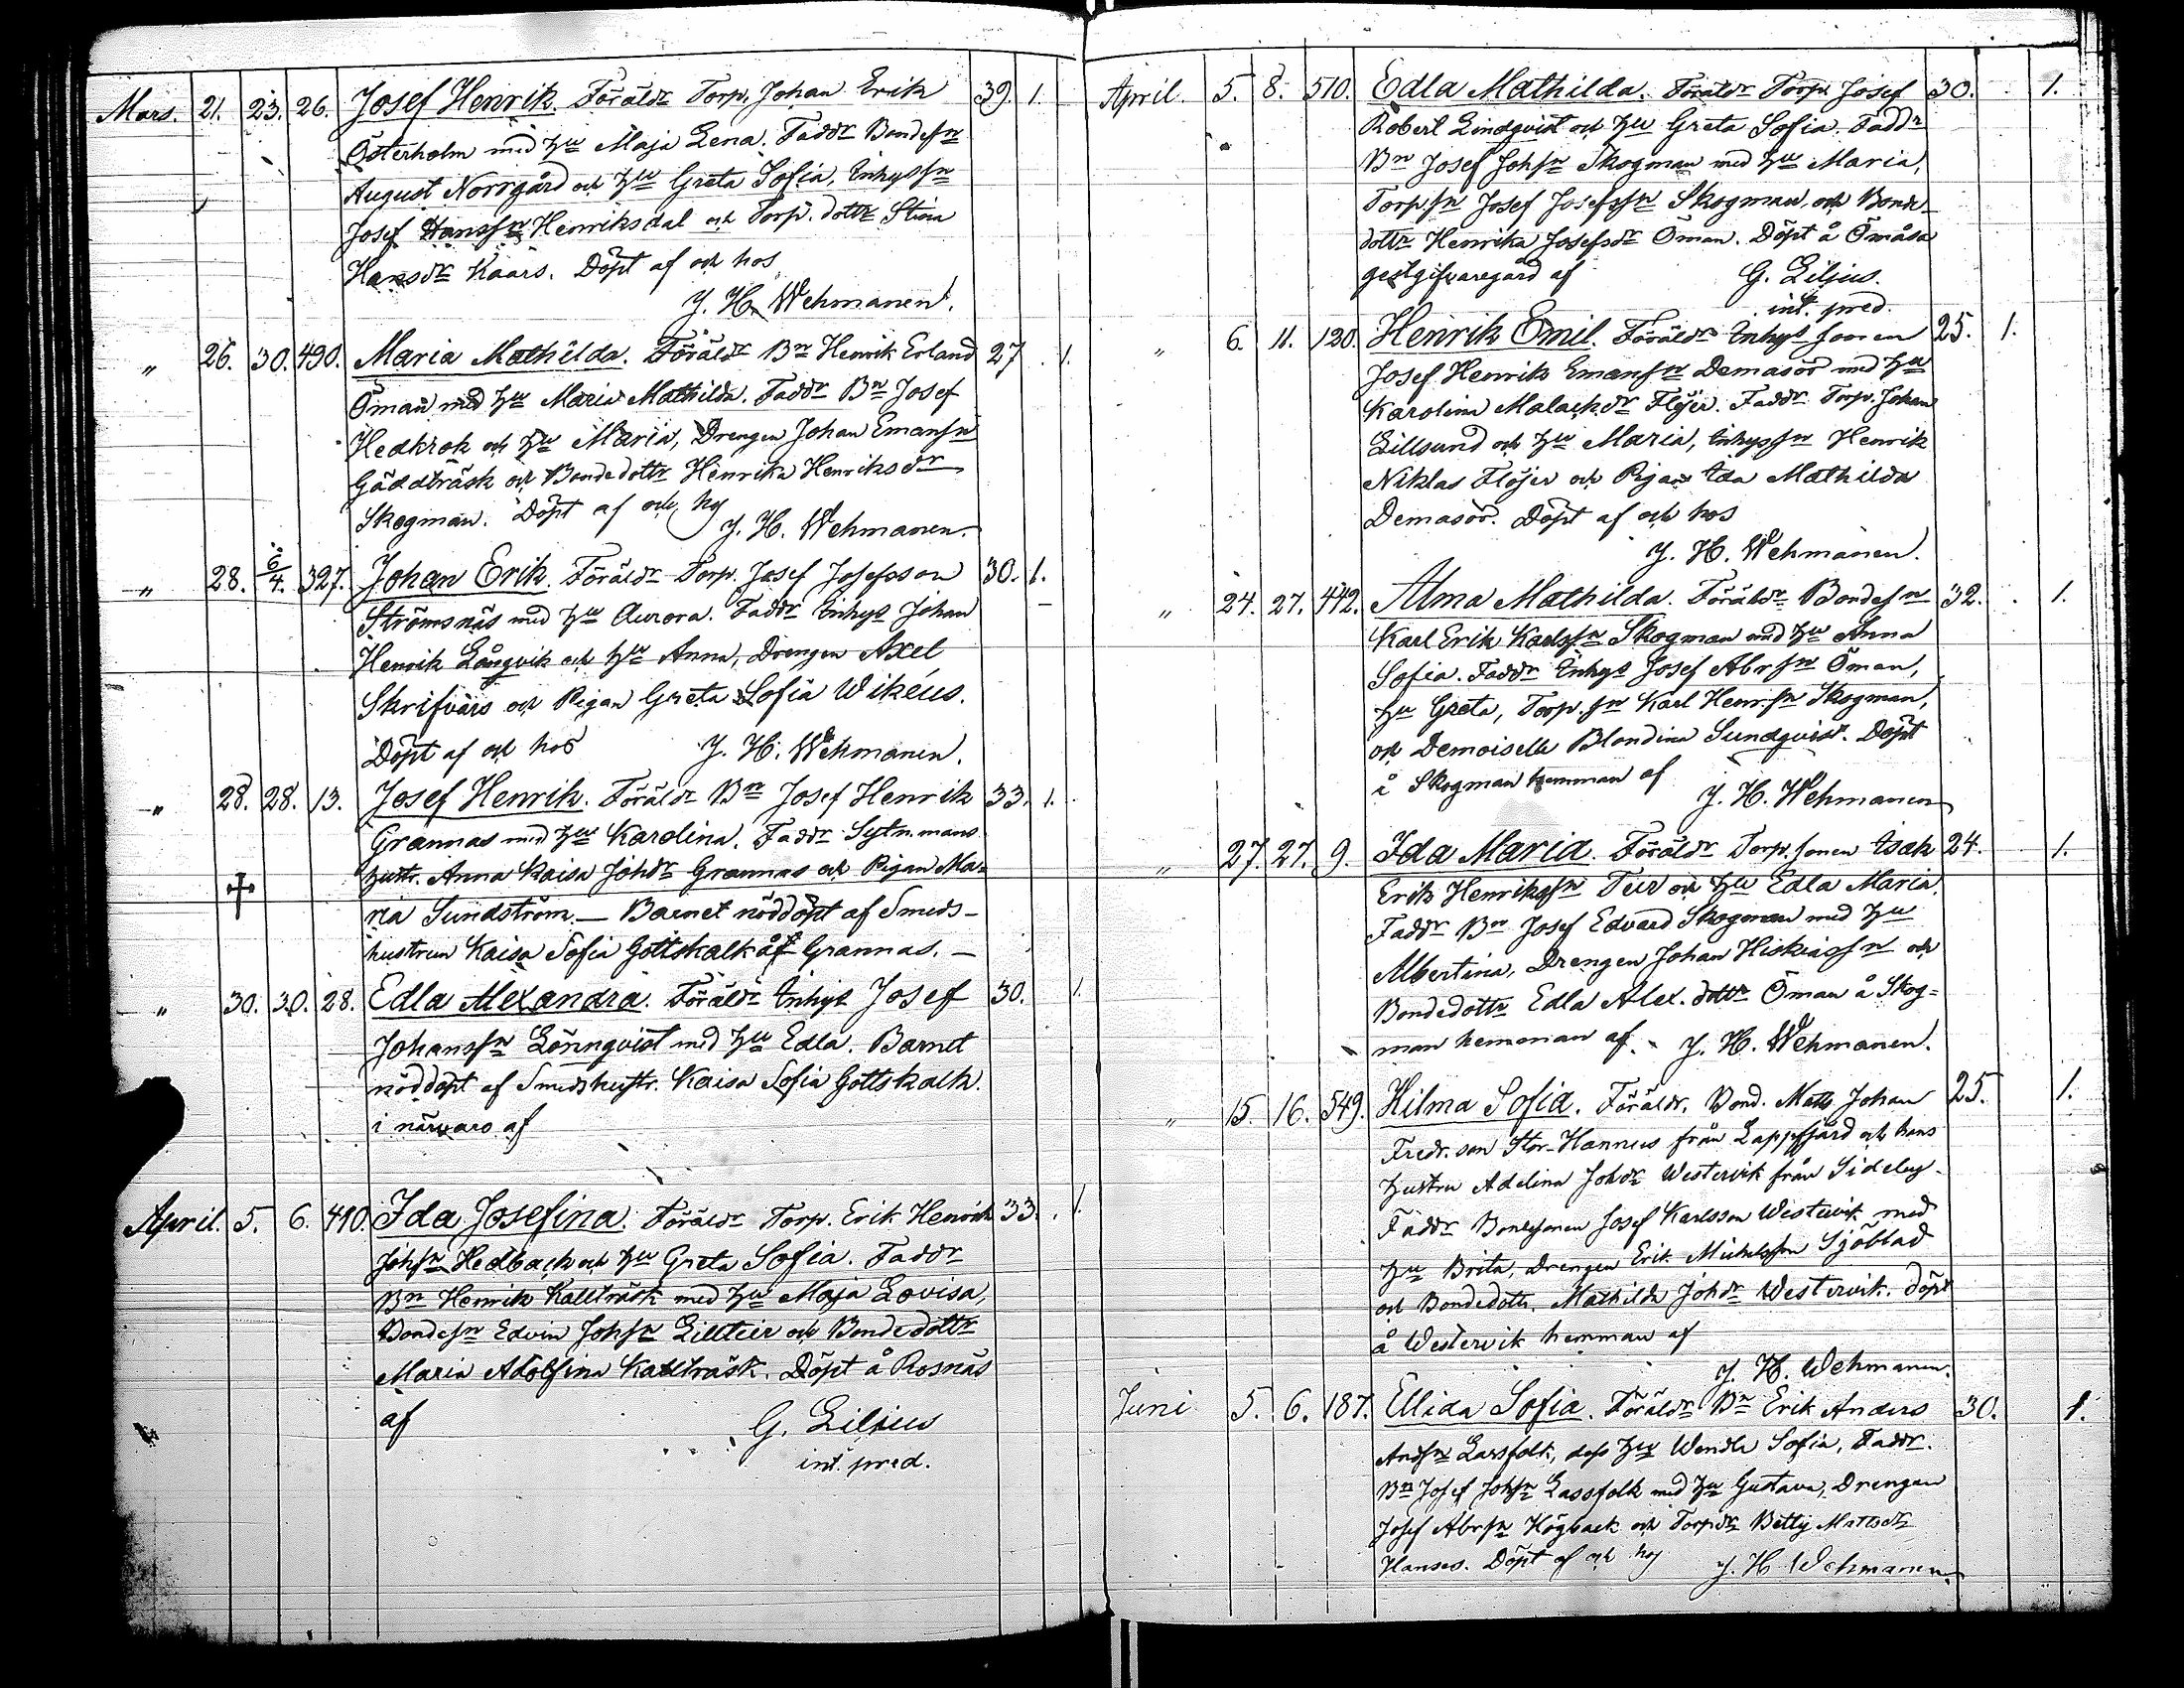 Mars. 21. 23. 26. Josef Henrik. Föräldr Torp. Johan Erik 39. 1.
Österholm med Hu Maja Lena. Faddr Bondesn
August Norrgård och Hu Greta Sofia, Inhyssn
Josef Hanssn Henriksdal och Torp. dottr Stina
Hansdr Kaars. Döpt af och hos
J. H. Wehmanen.
" 26. 30. 490. Maria Mathilda. Föräldr Bn Henrik Erland 27. 1.
Öman med Hu Maria Mathilda. Faddr Bn Josef
Hedkrok och Hu Maria, Drengen Johan Emanssn
Gäddträsk och Bondedottr Henrika Henriksdr
Skogman. Döpt af och hos
J. H. Wehmanen.
" 28. 6/4. 327. Johan Erik. Föräldr Torp. Josef Josefsson 30. 1.
Strömsnäs med Hu Aurora. Faddr Inhys Johan
Henrik Långvik och Hu Anna, Drengen Axel
Skrifvars och Pigan Greta Sofia Wikéus.
Döpt af och hos J. H. Wehmanen.
" 28. 28. 13. Josef Henrik. Föräldr Bn Josef Henrik 33. 1.
Grannas med Hu Karolina. Faddr Sytn. mans
hustr. Anna Kaisa Johdr Grannas och Pigan Ma=
ria Sundström — Barnet nöddöpt af Smeds-
hustrun Kaisa Sofia Gottskalk å Grannas. —
" 30. 30. 28. Edla Alexandra. Föräldr Inhys Josef 30. 1.
Johanssn Lönnqvist med Hu Edla. Barnet
nöddöpt af Smedshustr. Kaisa Sofia Gottskalk
i närvaro af
April. 5. 6. 410. Ida Josefina. Föräldr Torp. Erik Henrik 33. 1.
Johsn Hedback och Hu Greta Sofia. Faddr
Bn Henrik Kallträsk med Hu Maja Lovisa,
Bondesn Edvin Johsn Lillteir och Bondedottr
Maria Adolfina Kallträsk. Döpt å Rosnäs
af G. Lilius
int. pred.
April. 5. 8. 510. Edla Mathilda. Föräldr Torp. Josef 30. 1.
Robert Lindqvist och Hu Greta Sofia. Faddr
Bn Josef Johsn Skogman med Hu Maria,
Torp.sn Josef Josefssn Skogman, och Bonde-
dottr Henrika Josefsdr Öman. Döpt å Ömåsa
gestgifvaregård af G. Lilius.
int. pred.
" 6. 11. 120. Henrik Emil. Föräldr Inhys sonen 25. 1.
Josef Henrik Emanssn Demasör med Hu
Karolina Malachdr Flöjer. Faddr Torp. Johan
Lillsund och Hu Maria, Inhyssn Henrik
Niklas Flöjer och Pigan Ida Mathilda
Demasör. Döpt af och hos
J. H. Wehmanen.
" 24. 27. 442. Alma Mathilda. Föräldr Bondesn 32. 1.
Karl Erik Karlssn Skogman med Hu Anna
Sofia. Faddr Inhys Josef Abrsn Öman,
Hu Greta, Torp.sn Karl Henr.sn Skogman,
och Demoiselle Blondina Sundqvist. Döpt
å Skogman hemman af
J. H. Wehmanen
" 27. 27. 9. Ida Maria. Föräldr Torp. sonen Isak 24. 1.
Erik Henrikssn Teir och Hu Edla Maria.
Faddr Bn Josef Edvard Skogman med Hu
Albertina, Drengen Johan Hiskiassn och
Bondedottr Edla Alex. dottr Öman å Skog=
man hemman af J. H. Wehmanen.
" 15. 16. 549. Hilma Sofia. Föräldr. Bond. Matts Johan 25. 1.
Fredr. son Stor-Hannus från Lappfjärd och hans
Hustru Adelina Johdr Westervik från Sideby.
Faddr Bondsonen Josef Karlsson Westervik med
Hu Brita, Drengen Erik Michelsson Sjöblad
och Bondedottr. Mathilda Johdr Westervik. Döpt
å Westervik hemman af
J. H. Wehmanen.
Juni 5. 6. 187. Ellida Sofia. Föräldr Bn Erik Anders 30. 1.
Andsn Lassfolk, dess Hu Wendla Sofia, Faddr.
Bn Josef Johsn Lassfolk med Hu Gustava, Drengen
Josef Abrsn Högback och Torpdr Betty Mattsdr
Hanses. Döpt af och hos J. H. Wehmanen.